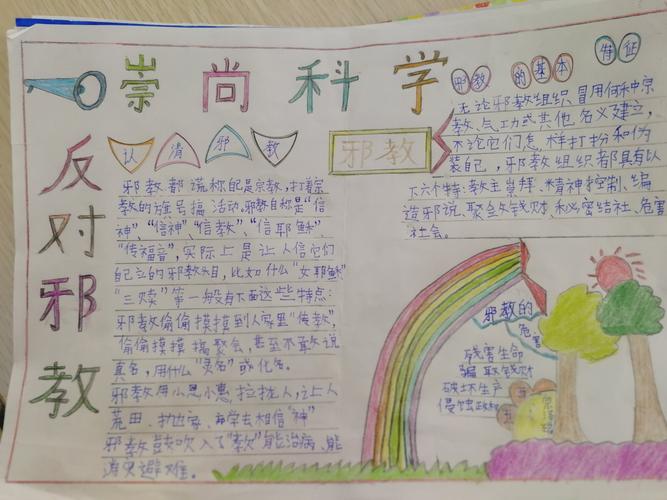 崇尚科学
反对邪教
认清邪教
邪教都谎称自己是宗教,打着宗
教的旗号搞活动。邪教自称是“信
神”、“信神”、“信教”、“信耶稣”、
“传福音”,实际上是让人信它们
自己立的邪教头目,比如什么“女耶稣”
“三赎”等一般有下面这些特点:
邪教偷偷摸摸到人家里“传教”,
偷偷摸摸搞聚会,甚至不敢说
真名,用什么“灵名”或化名。
邪教用小恩小惠拉拢人,让人
荒田、去相信“神”
邪教鼓吹入了“教”能治病、能
消灾避难。
邪教
邪教的基本特征
无论邪教组织冒用何种宗
教、气功或其他名义建立,
不论它们怎样打扮和伪
装自己,邪教组织都具有以
下六个特:教主崇拜、精神控制、编
造邪说、聚敛钱财、秘密结社、危害
社会。
邪教的
危害
残害生命
骗取钱财
破坏生产
侵蚀政权